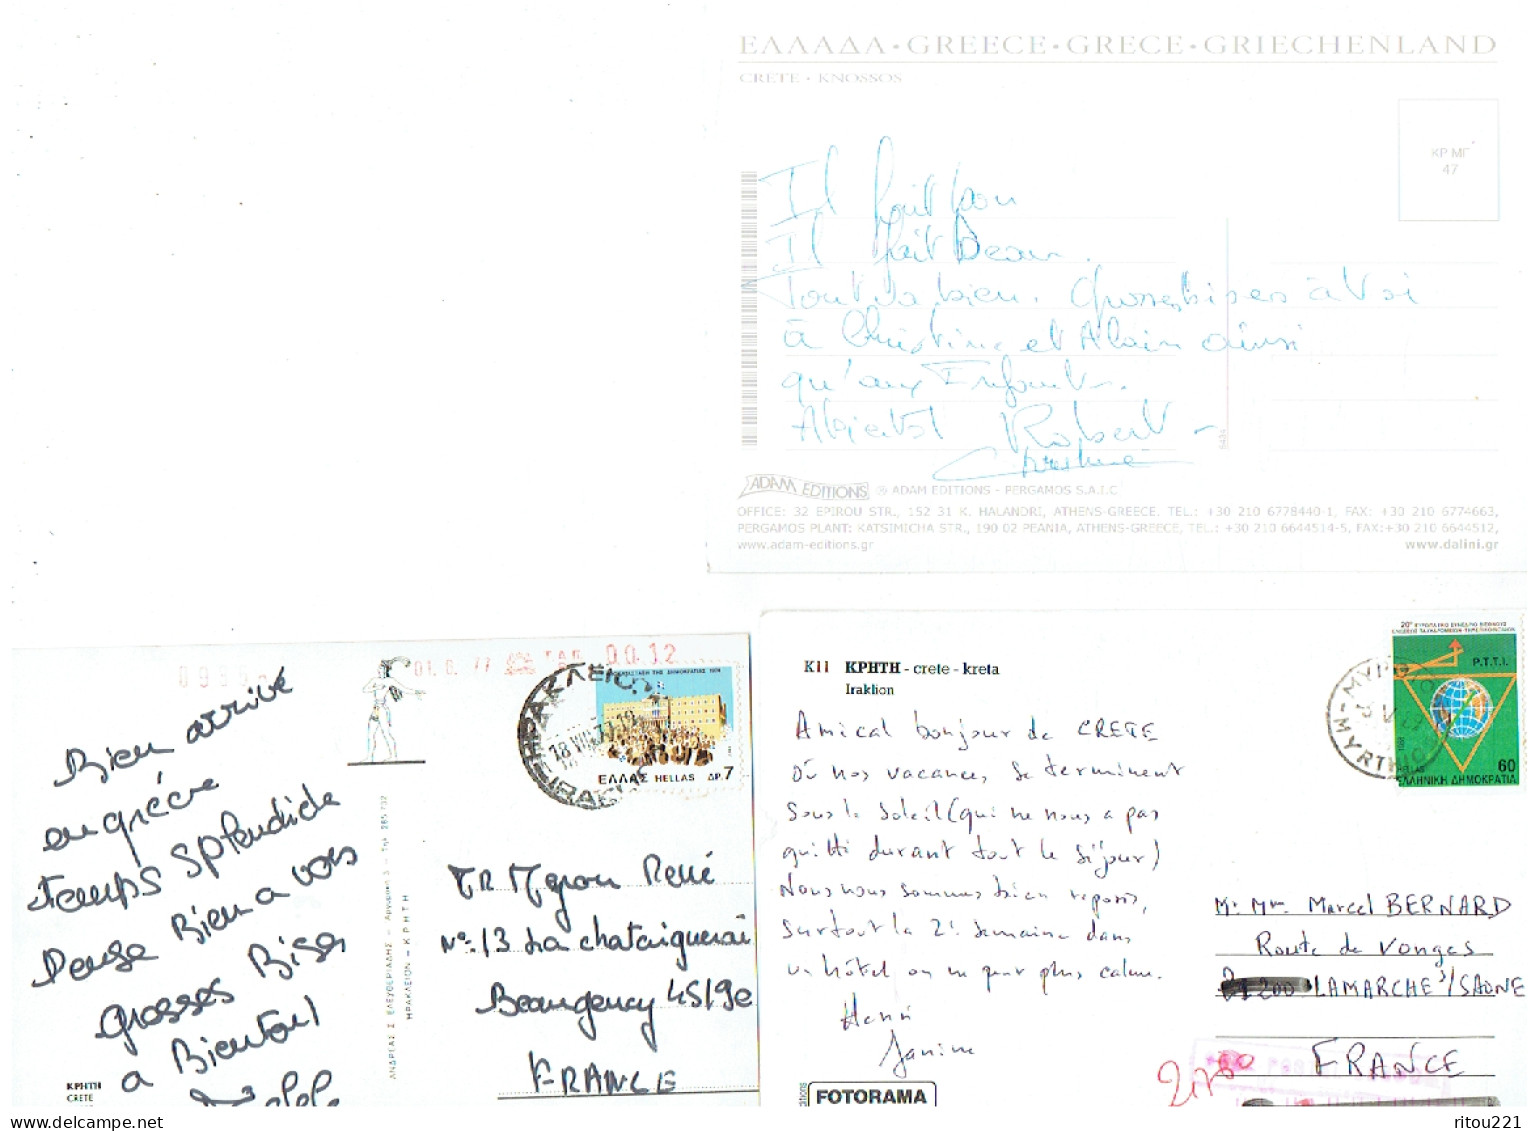 ΕΛΛΑΔΑ • GREECE • GRECE • GRIECHENLAND
CRETE • KNOSSOS
KP ΜΓ
47
Il fait bon
Il fait Beau.
Tout va bien. Grosses bises à toi
à Christine et Alain ainsi
qu'aux Enfants.
A bientôt Robert
Christine
ADAM EDITIONS ® ADAM EDITIONS - PERGAMOS S.A.I.C
OFFICE: 32 EPIROU STR., 152 31 K. HALANDRI, ATHENS-GREECE. TEL.: +30 210 6778440-1, FAX: +30 210 6774663,
PERGAMOS PLANT: KATSIMICHA STR., 190 02 PEANIA, ATHENS-GREECE, TEL.: +30 210 6644514-5, FAX:+30 210 6644512,
www.adam-editions.gr www.dalini.gr
01.8.77 00.12
ΕΛΛΑΣ HELLAS ΔΡ.7
Bien arrivé
en grèce
temps splendide
Pense Bien a vous
grosses Bises
a Bientôt
ΚΡΗΤΗ
CRETE
ΑΝΔΡΕΑΣ Σ ΕΛΕΥΘΕΡΙΑΔΗΣ
ΗΡΑΚΛΕΙΟΝ - ΚΡΗΤΗ
MR Mgnon René
No 13 La chataigneraie
Beaugency 45190
FRANCE
K11 ΚΡΗΤΗ - crete - kreta
Iraklion
Amical bonjour de CRETE
Où nos vacances se terminent
sous le soleil (qui ne nous a pas
quitté durant tout le séjour)
Nous nous sommes bien reposés,
surtout la 2e semaine dans
un hôtel on ne peut plus calme.
Henri
Janine
FOTORAMA
P.T.T.I.
60
ΕΛΛΗΝΙΚΗ ΔΗΜΟΚΡΑΤΙΑ
Mr Mme Marcel BERNARD
Route de Vonges
LAMARCHE s/SAONE
FRANCE
ritou221